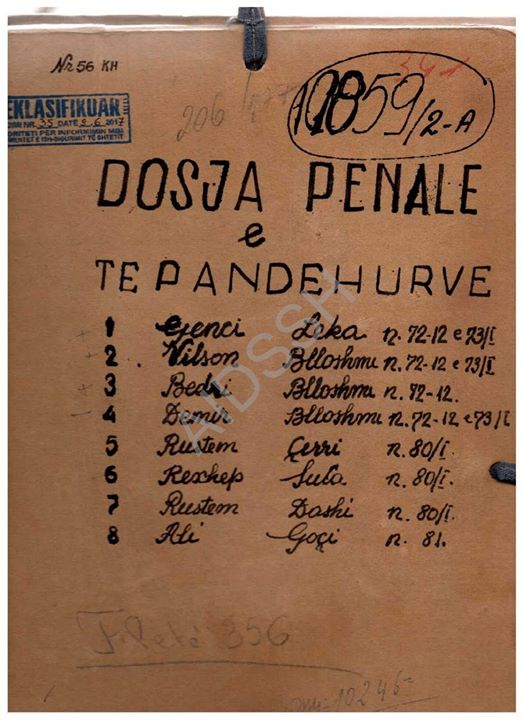 Nr 56 KH
391
206
EKLASIFIKUAR
NR. 35 DATË 9.6.2017
ORITETI PËR INFORMIMIN MBI
MENTET E ISH-SIGURIMIT TË SHTETIT
10859/2-A
DOSJA PENALE
e
TE PANDEHURVE
1 Genci Leka n. 72-12 e 73/I
2 Vilson Blloshmi n. 72-12 e 73/I
3 Bedri Blloshmi n. 72-12.
4 Demir Blloshmi n. 72-12 e 73/I
5 Rustem Çerri n. 80/I.
6 Rexhep Suta n. 80/I.
7 Rustem Dashi n. 80/I.
8 Ali Goçi n. 81.
AIDSSH
Fletë 356
10246=